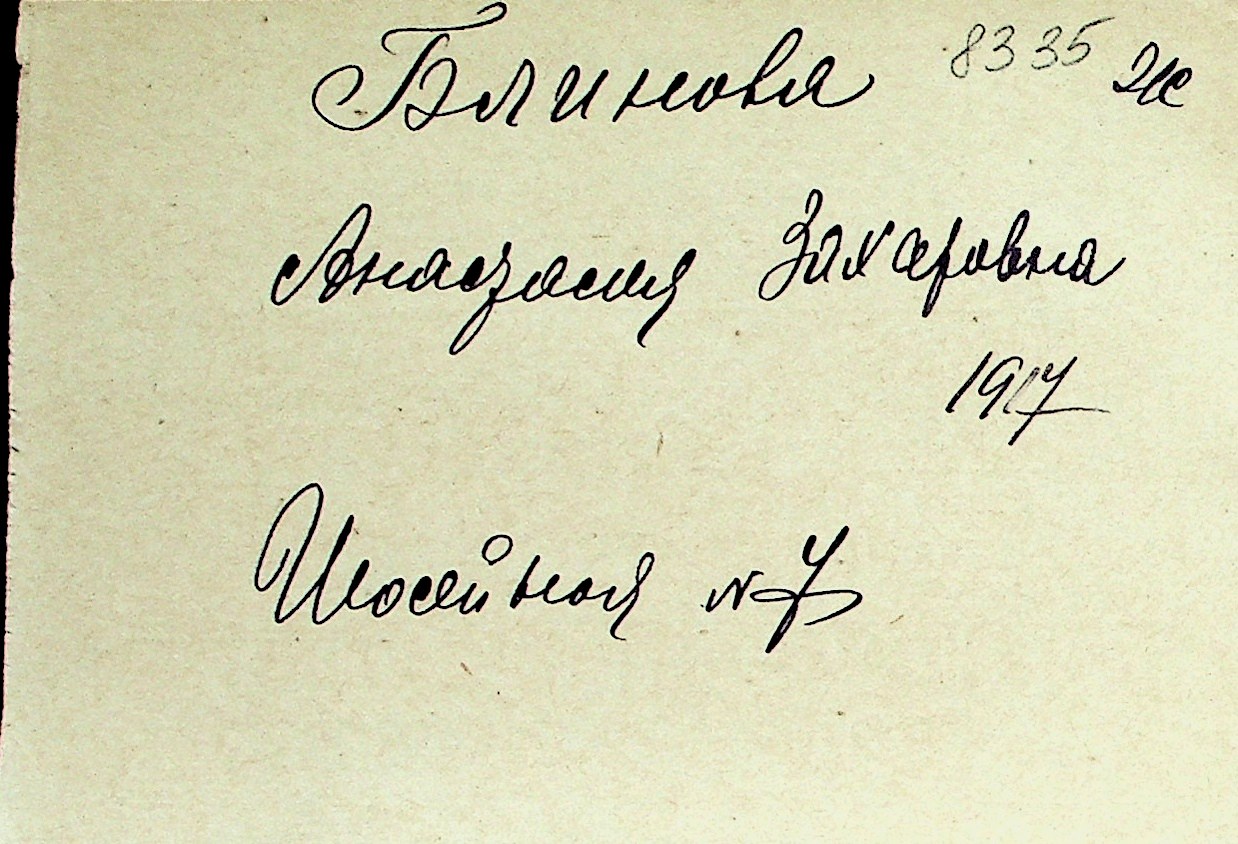 Блинова 8335 Ж
Анастасия Захаровна
1917
Шосейная N 7